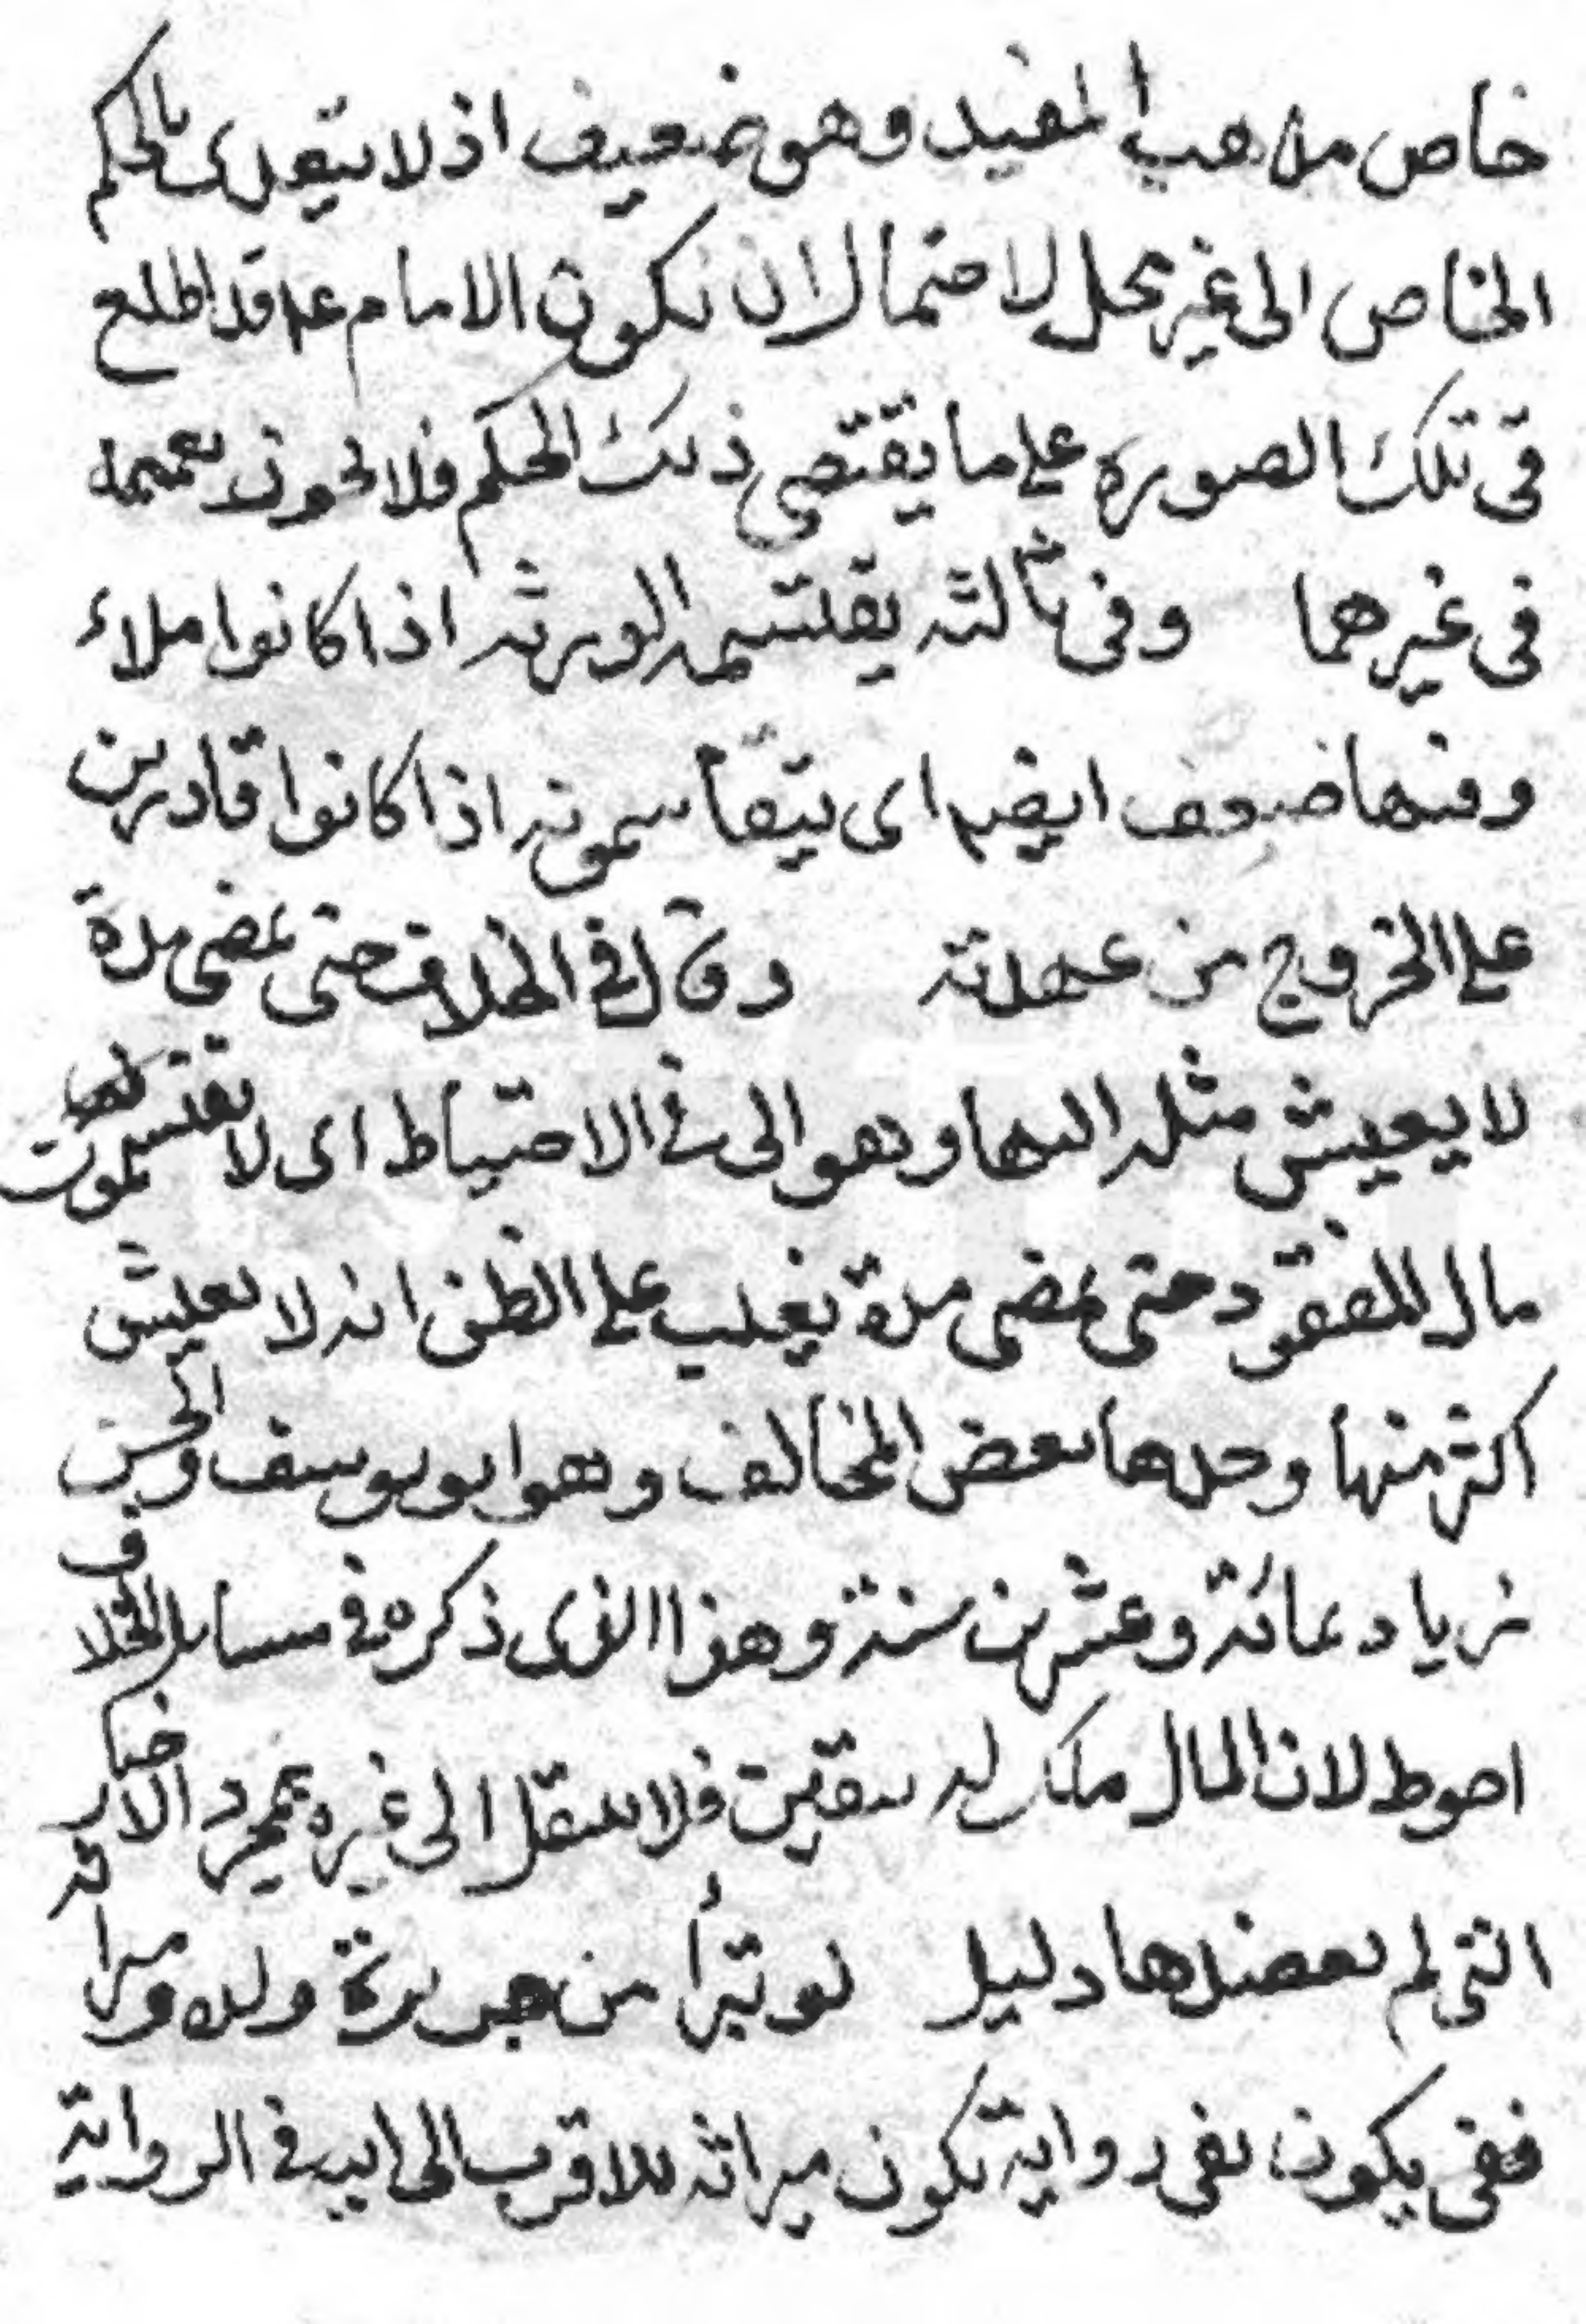 خاص مذهب المفيد وهو ضعيف اذ لا يتعدى بالحكم
الخاص الى غير محل لاحتمال ان يكون الامام ع قد اطلع
فى تلك الصورة على ما يقتضى ذلك الحكم فلا يجوز تعميمه
فى غيرهما وفى ثالثه يقتسمه الورثه اذا كانوا ملاء
وفيها ضعف ايضا اى يتقاسمونه اذا كانوا قادرين
على الخروج من عهدته وقال فى الخلاف حتى يمضى مدة
لا يعيش مثله اليها وهو اولى فى الاحتياط اى لا يقتسمون
مال المفقود حتى يمضى مدة يغلب على الظن انه لا يعيش
اكثر منها وحدها بعض المخالف وهو ابو يوسف والحسن
بن زياد بمائة وعشرين سنة وهذا الذى ذكره فى مسايل الخلاف
احوط لان المال ملك له بيقين فلا ينتقل الى غيره بمجرد الاخبار
التى لم يعضدها دليل لو تبرأ من جريرة ولده وميراثه
ففى يكون نفى رواية يكون ميراثه للاقرب الى ابيه فى الرواية